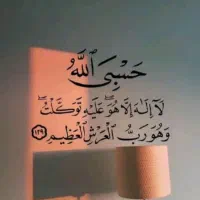 حَسْبِيَ ٱللَّهُ
لَآ إِلَـٰهَ إِلَّا هُوَ ۖ عَلَيْهِ تَوَكَّلْتُ ۖ
وَهُوَ رَبُّ ٱلْعَرْشِ ٱلْعَظِيمِ ١٢٩